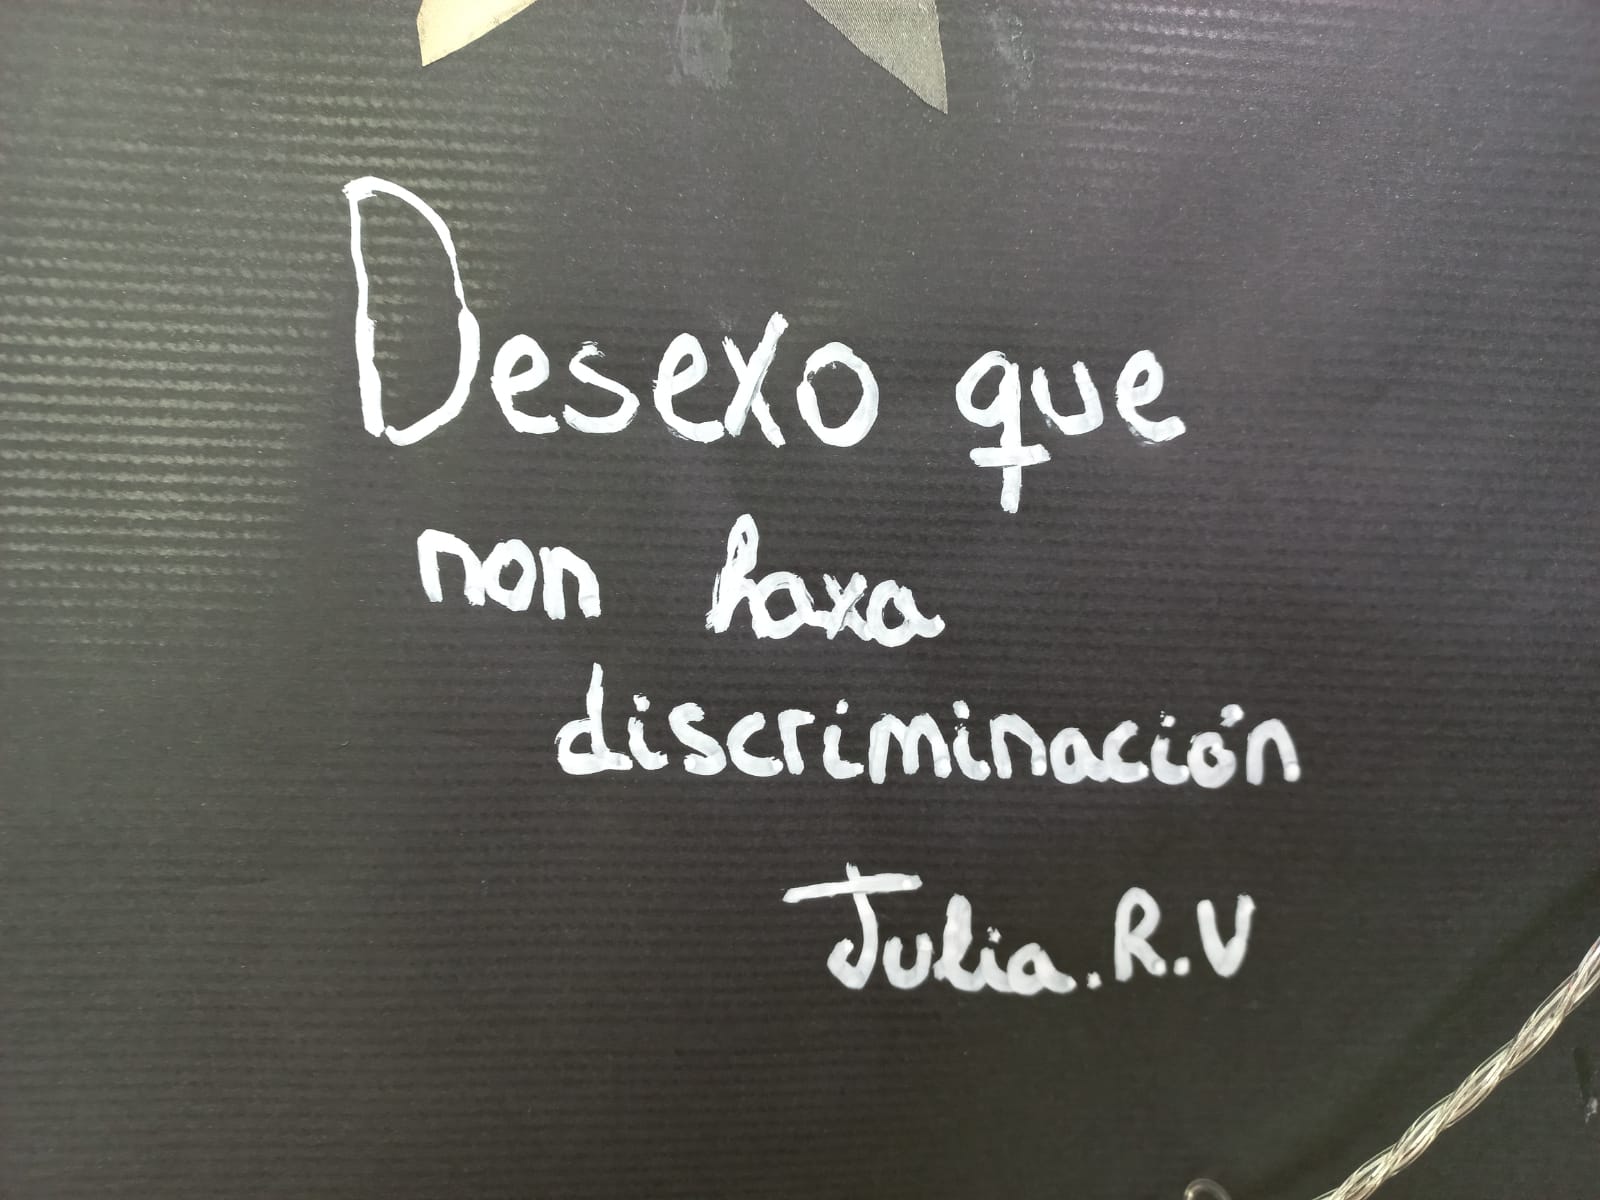 Desexo que
non haxa
discriminación
Julia.R.V